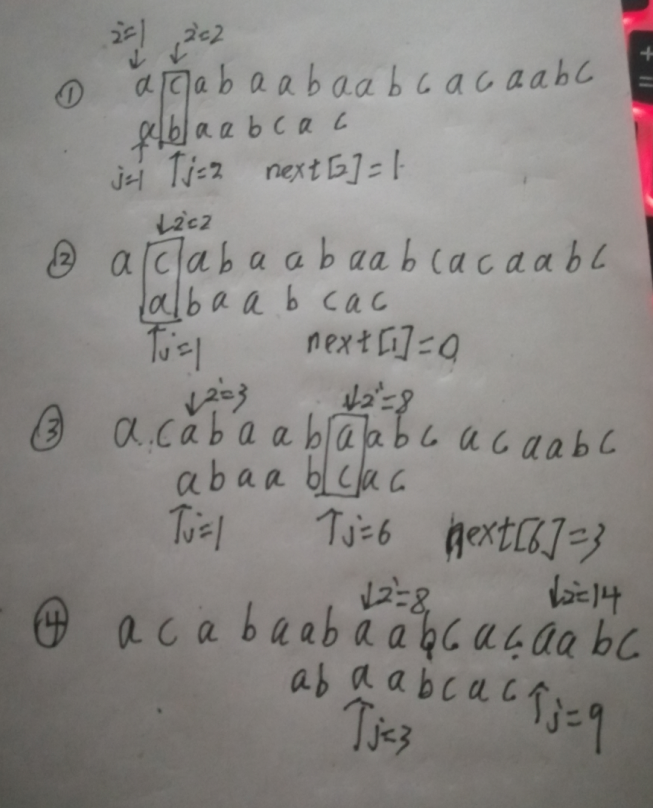 i=1 i=2
① a c a b a a b a a b c a c a a b c
a b a a b c a c
j=1 j=2 next[2]=1
i=2
② a c a b a a b a a b c a c a a b c
a b a a b c a c
j=1 next[1]=0
i=3 i=8
③ a c a b a a b a a b c a c a a b c
a b a a b c a c
j=1 j=6 next[6]=3
i=8 i=14
④ a c a b a a b a a b c a c a a b c
a b a a b c a c
j=3 j=9